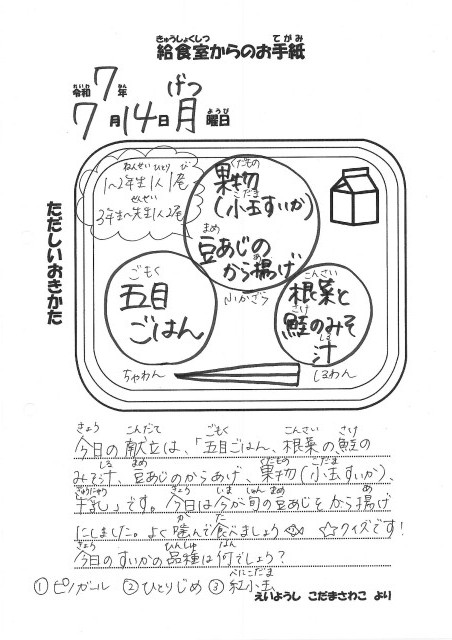 きゅうしょくしつ てがみ
給食室からのお手紙
れいわ ねん げつ
令和7年
7月14日月曜日
ようび
ただしいおきかた
ねんせい ひとり び
1〜2年生1人1尾
せんせい
3年生〜先生1人2尾
くだもの
果物
こだま
(小玉すいか)
まめ
豆あじの
あ
から揚げ
ごもく
五目
ごはん
こんさい
根菜と
さけ
鮭のみそ
しる
汁
ふかざら
ちゃわん
しるわん
きょう こんだて ごもく こんさい さけ
今日の献立は、「五目ごはん、根菜の鮭の
しる まめ くだもの こだま
みそ汁、豆あじのからあげ、果物(小玉すいか)、
ぎゅうにゅう きょう いま しゅん まめ あ
牛乳」です。今日は今が旬の豆あじをから揚げ
か た
にしました。よく噛んで食べましょう ☆クイズです!
きょう ひんしゅ なん
今日のすいかの品種は何でしょう?
べにこだま
①ピノガール ②ひとりじめ ③紅小玉
えいようし こだまさわこ より